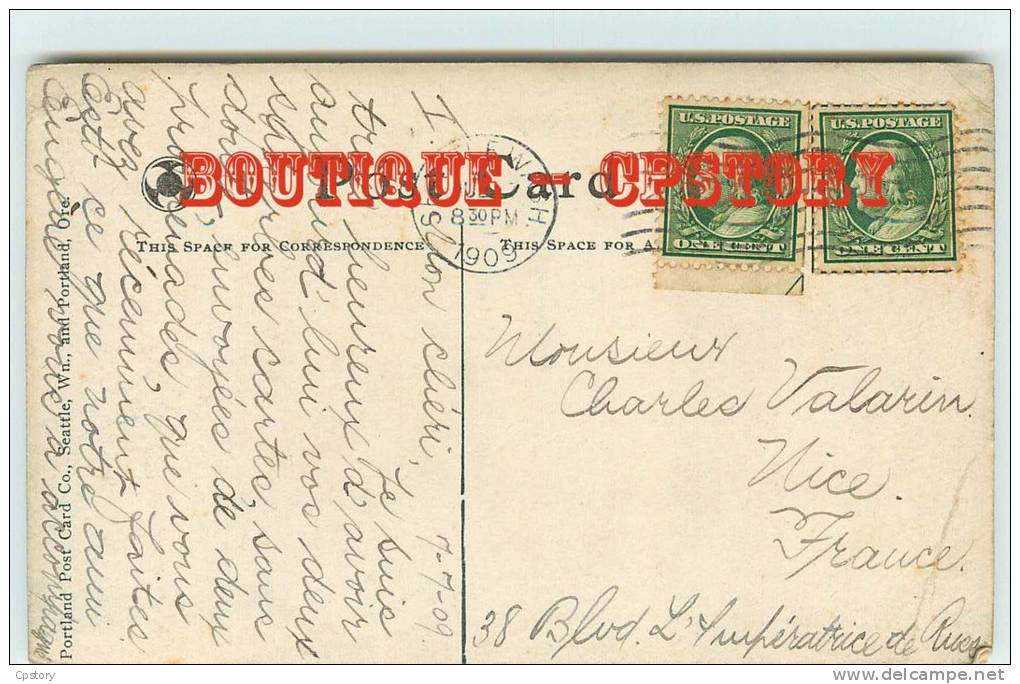 BOUTIQUE - CPSTORY
Post Card
THIS SPACE FOR CORRESPONDENCE
THIS SPACE FOR A
U.S. POSTAGE
ONE CENT
U.S. POSTAGE
ONE CENT
8 30 PM
1909
Monsieur
Charles Valarin
Nice
France.
38 Blvd. L'Impératrice de
7-7-09.
chéri, Je suis
très heureux d'avoir
aujourd'hui vos deux
cartes, sans
envoyées de
promenades, que vous
avez récemment faites
ce que notre ami
Portland Post Card Co., Seattle, Wn., and Portland, Ore.
Cpstory
delcampe.net